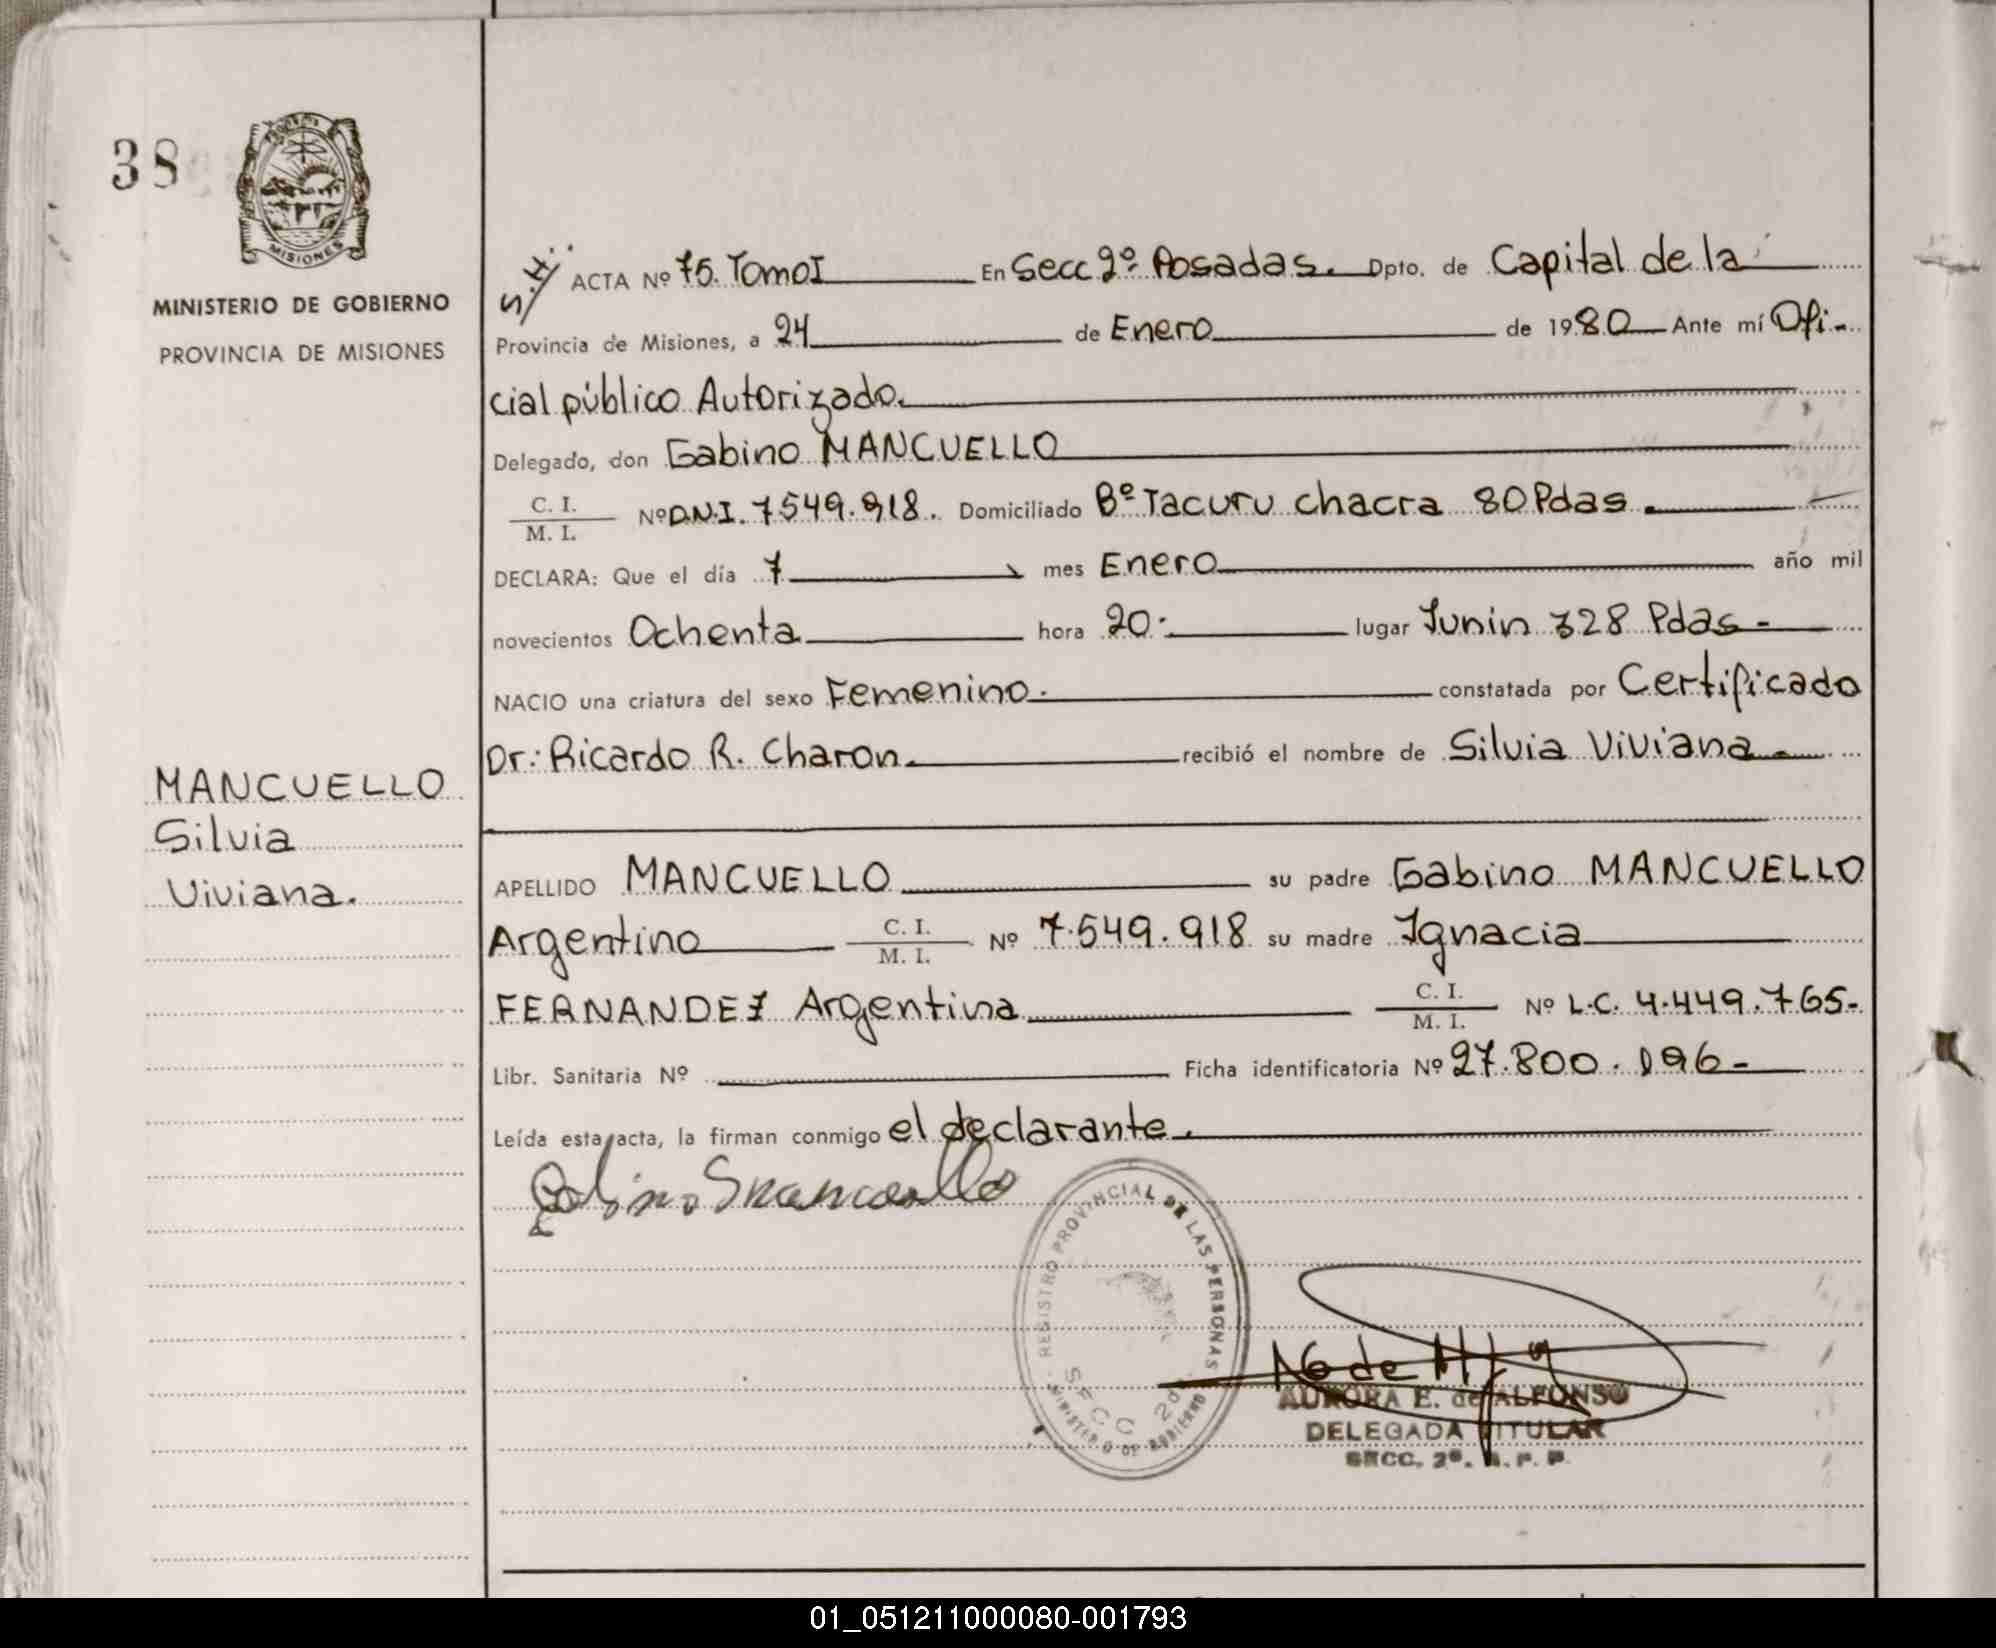 38
MISIONES
MINISTERIO DE GOBIERNO
PROVINCIA DE MISIONES
MANCUELLO
Silvia
Viviana.
S.H. ACTA Nº 75. Tomo I En Secc 2º Posadas. Dpto. de Capital de la
Provincia de Misiones, a 24 de Enero de 1980 Ante mí Ofi-
cial público Autorizado.
Delegado, don Gabino MANCUELLO
C. I.
M. I. Nº D.N.I. 7549.918. Domiciliado Bº Tacuru chacra 80 Pdas.
DECLARA: Que el día 7 mes Enero año mil
novecientos Ochenta hora 20: lugar Junin 328 Pdas-
NACIO una criatura del sexo Femenino. constatada por Certificado
Dr: Ricardo R. Charon. recibió el nombre de Silvia Viviana.
APELLIDO MANCUELLO su padre Gabino MANCUELLO
Argentino C. I. M. I. Nº 7.549.918 su madre Ignacia
FERNANDEZ Argentina C. I. M. I. Nº L.C. 4.449.765-
Libr. Sanitaria Nº Ficha identificatoria Nº 27.800.196-
Leída esta acta, la firman conmigo el declarante.
Gabino Mancuello
REGISTRO PROVINCIAL DE LAS PERSONAS
SECC 2da
MINISTERIO DE GOBIERNO
AURORA E. de ALFONSO
DELEGADA TITULAR
SECC. 2ª. R. P. P.
01_051211000080-001793